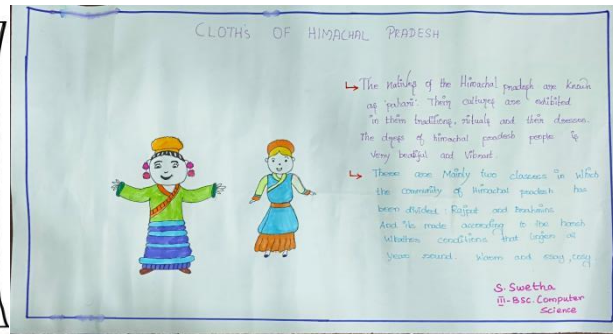 CLOTH'S OF HIMACHAL PRADESH
The Natives of the Himachal pradesh are known
as 'pahari'. Their cultures are exhibited
in their traditions, rituals and their dresses.
The dress of himachal pradesh people is
very beatiful and Vibrant.
There are Mainly two classes in which
the community of Himachal pradesh has
been divided: Rajput and Brahmins
And its made according to the harsh
Whether conditions that linger all
years round. Warm and easy, cosy
S. Swetha
III-BSC. Computer
Science